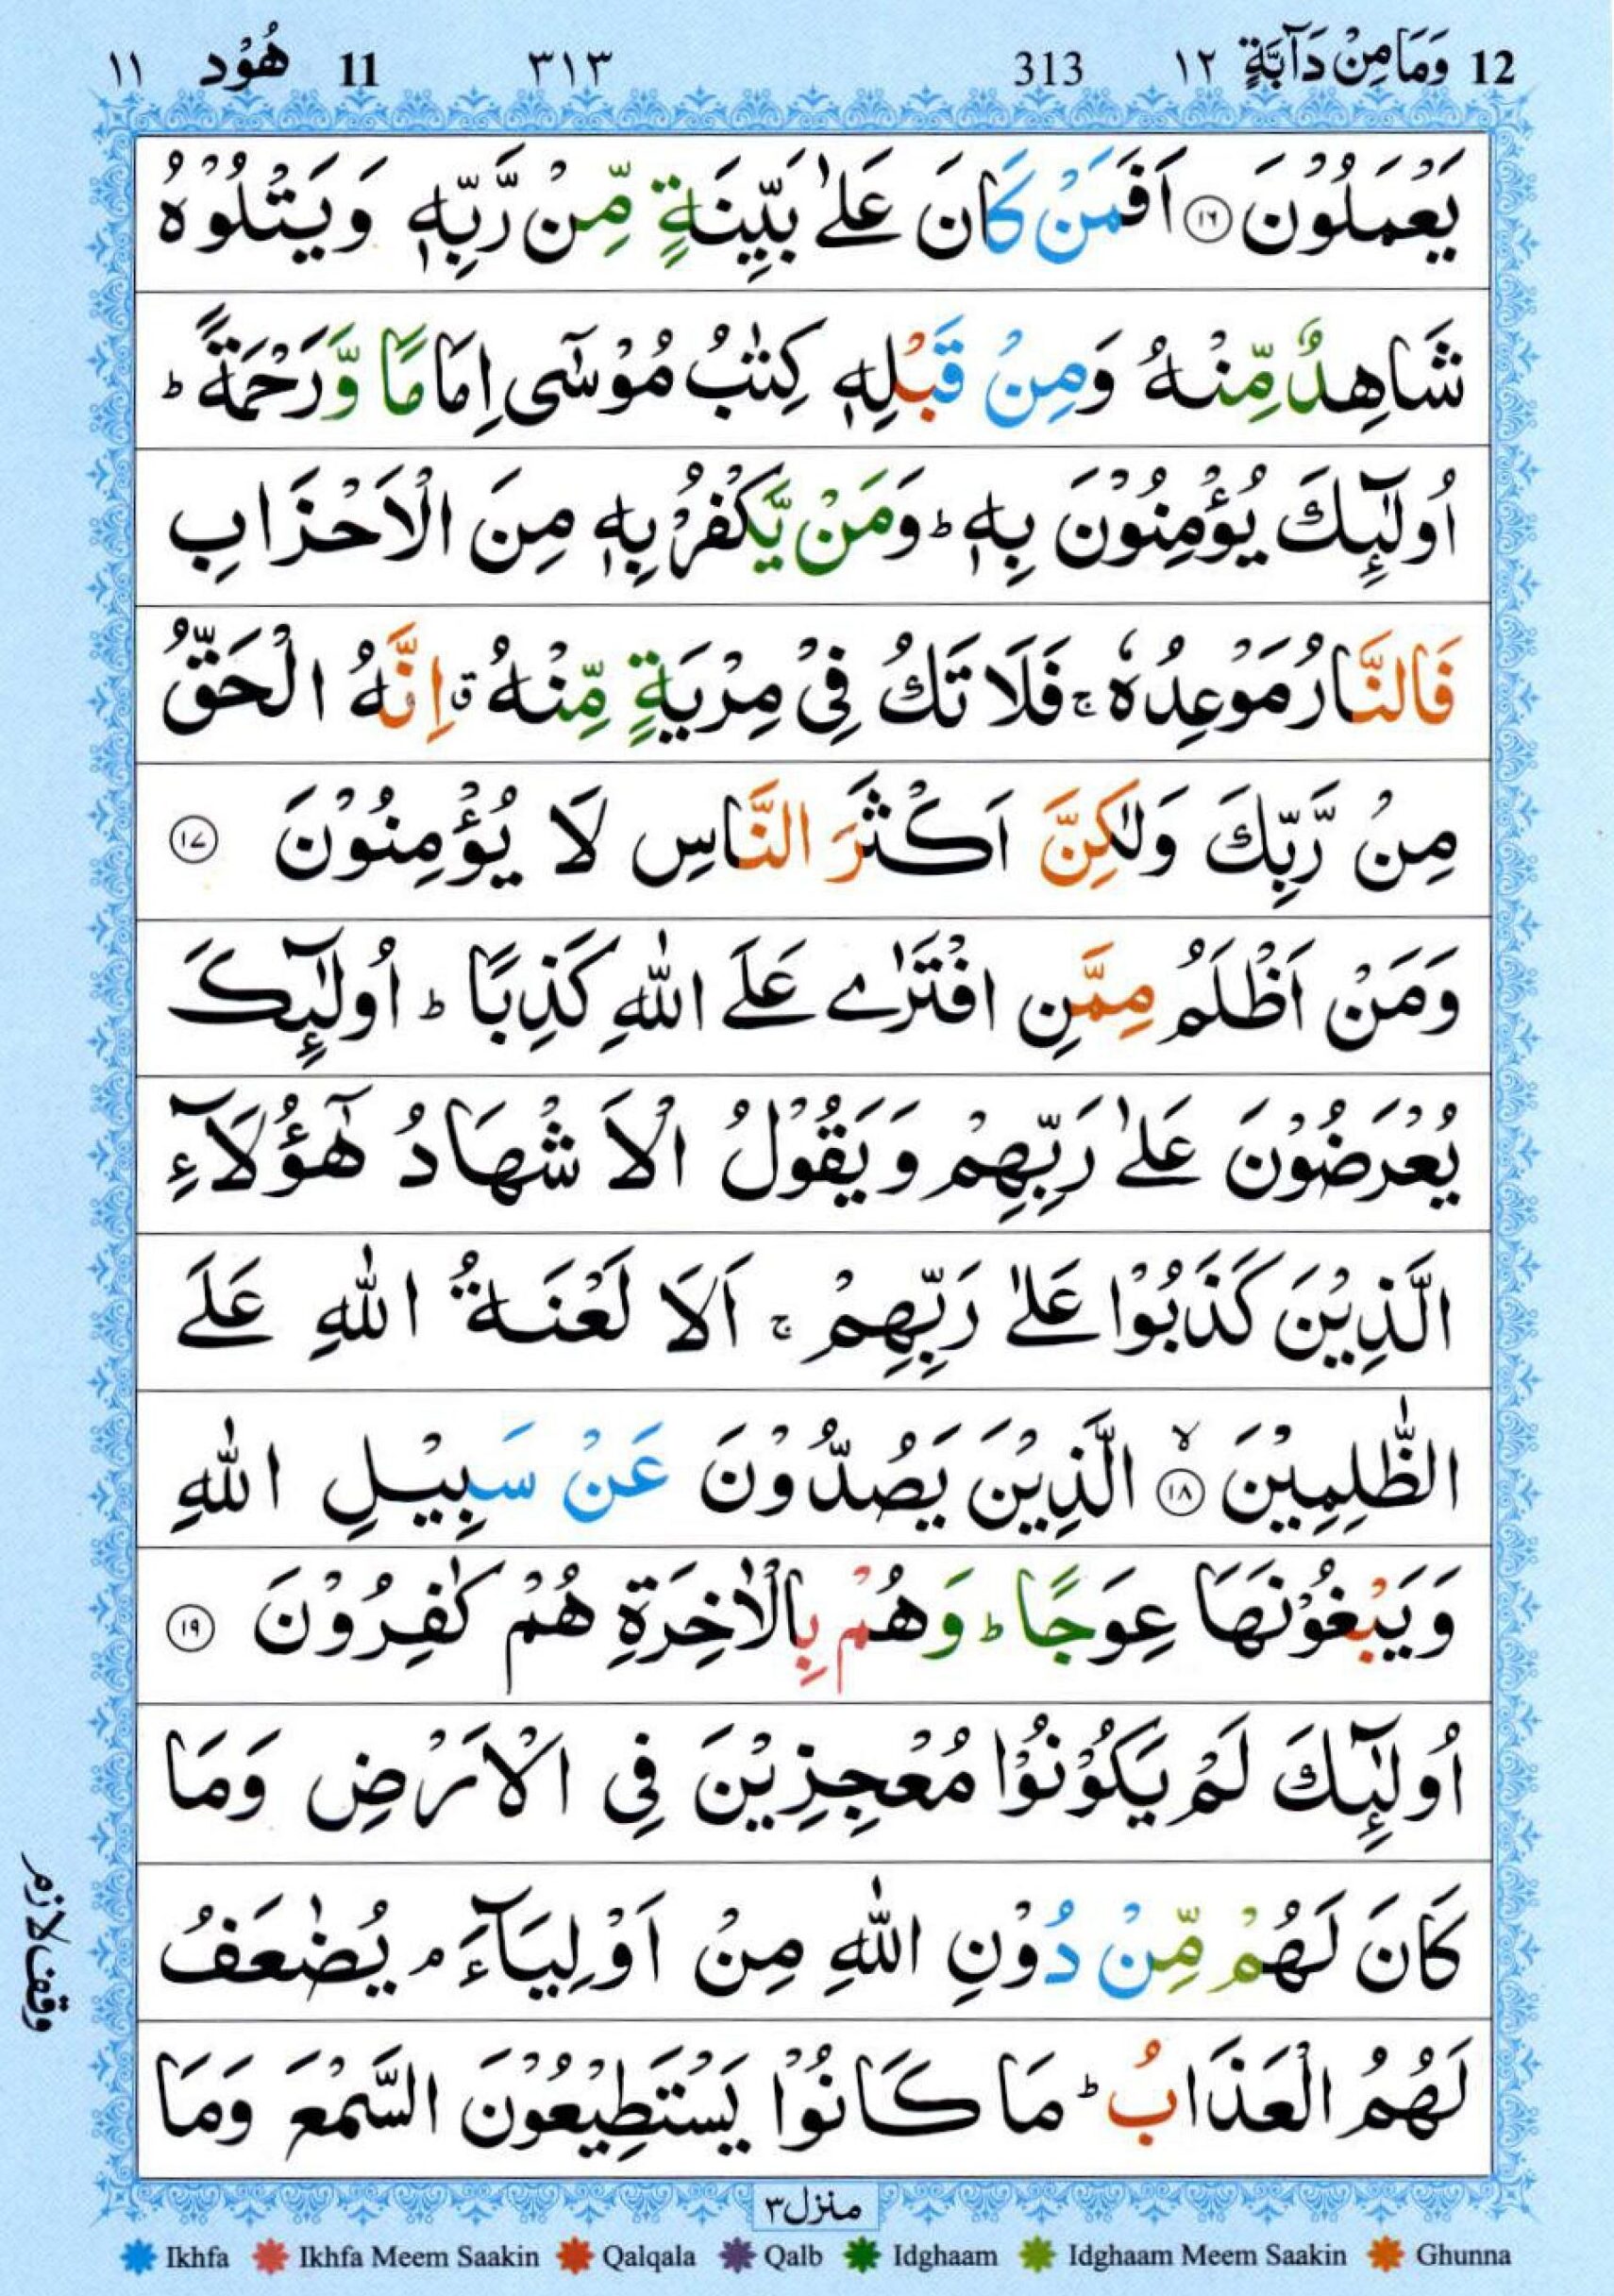 12 وَمَا مِنْ دَآبَّةٍ ١٢ 313 ٣١٣ 11 هُوْد ١١
يَعْمَلُوْنَ ﴿۱۶﴾ اَفَمَنْ كَانَ عَلٰى بَيِّنَةٍ مِّنْ رَّبِّهٖ وَيَتْلُوْهُ
شَاهِدٌ مِّنْهُ وَمِنْ قَبْلِهٖ كِتٰبُ مُوْسٰٓى اِمَامًا وَّرَحْمَةً ؕ
اُولٰٓئِكَ يُؤْمِنُوْنَ بِهٖ ؕ وَمَنْ يَّكْفُرْ بِهٖ مِنَ الْاَحْزَابِ
فَالنَّارُ مَوْعِدُهٗ ۚ فَلَا تَكُ فِيْ مِرْيَةٍ مِّنْهُ ۗ اِنَّهُ الْحَقُّ
مِنْ رَّبِّكَ وَلٰكِنَّ اَكْثَرَ النَّاسِ لَا يُؤْمِنُوْنَ ﴿۱۷﴾
وَمَنْ اَظْلَمُ مِمَّنِ افْتَرٰے عَلَے اللّٰهِ كَذِبًا ؕ اُولٰٓئِكَ
يُعْرَضُوْنَ عَلٰى رَبِّهِمْ وَيَقُوْلُ الْاَشْهَادُ هٰٓؤُلَآءِ
الَّذِيْنَ كَذَبُوْا عَلٰى رَبِّهِمْ ۚ اَلَا لَعْنَةُ اللّٰهِ عَلَے
الظّٰلِمِيْنَ ﴿۱۸﴾ۙ الَّذِيْنَ يَصُدُّوْنَ عَنْ سَبِيْلِ اللّٰهِ
وَيَبْغُوْنَهَا عِوَجًا ؕ وَهُمْ بِالْاٰخِرَةِ هُمْ كٰفِرُوْنَ ﴿۱۹﴾
اُولٰٓئِكَ لَمْ يَكُوْنُوْا مُعْجِزِيْنَ فِى الْاَرْضِ وَمَا
كَانَ لَهُمْ مِّنْ دُوْنِ اللّٰهِ مِنْ اَوْلِيَآءَ ۘ يُضٰعَفُ
وقف لازم
لَهُمُ الْعَذَابُ ؕ مَا كَانُوْا يَسْتَطِيْعُوْنَ السَّمْعَ وَمَا
منزل ٣
Ikhfa Ikhfa Meem Saakin Qalqala Qalb Idghaam Idghaam Meem Saakin Ghunna